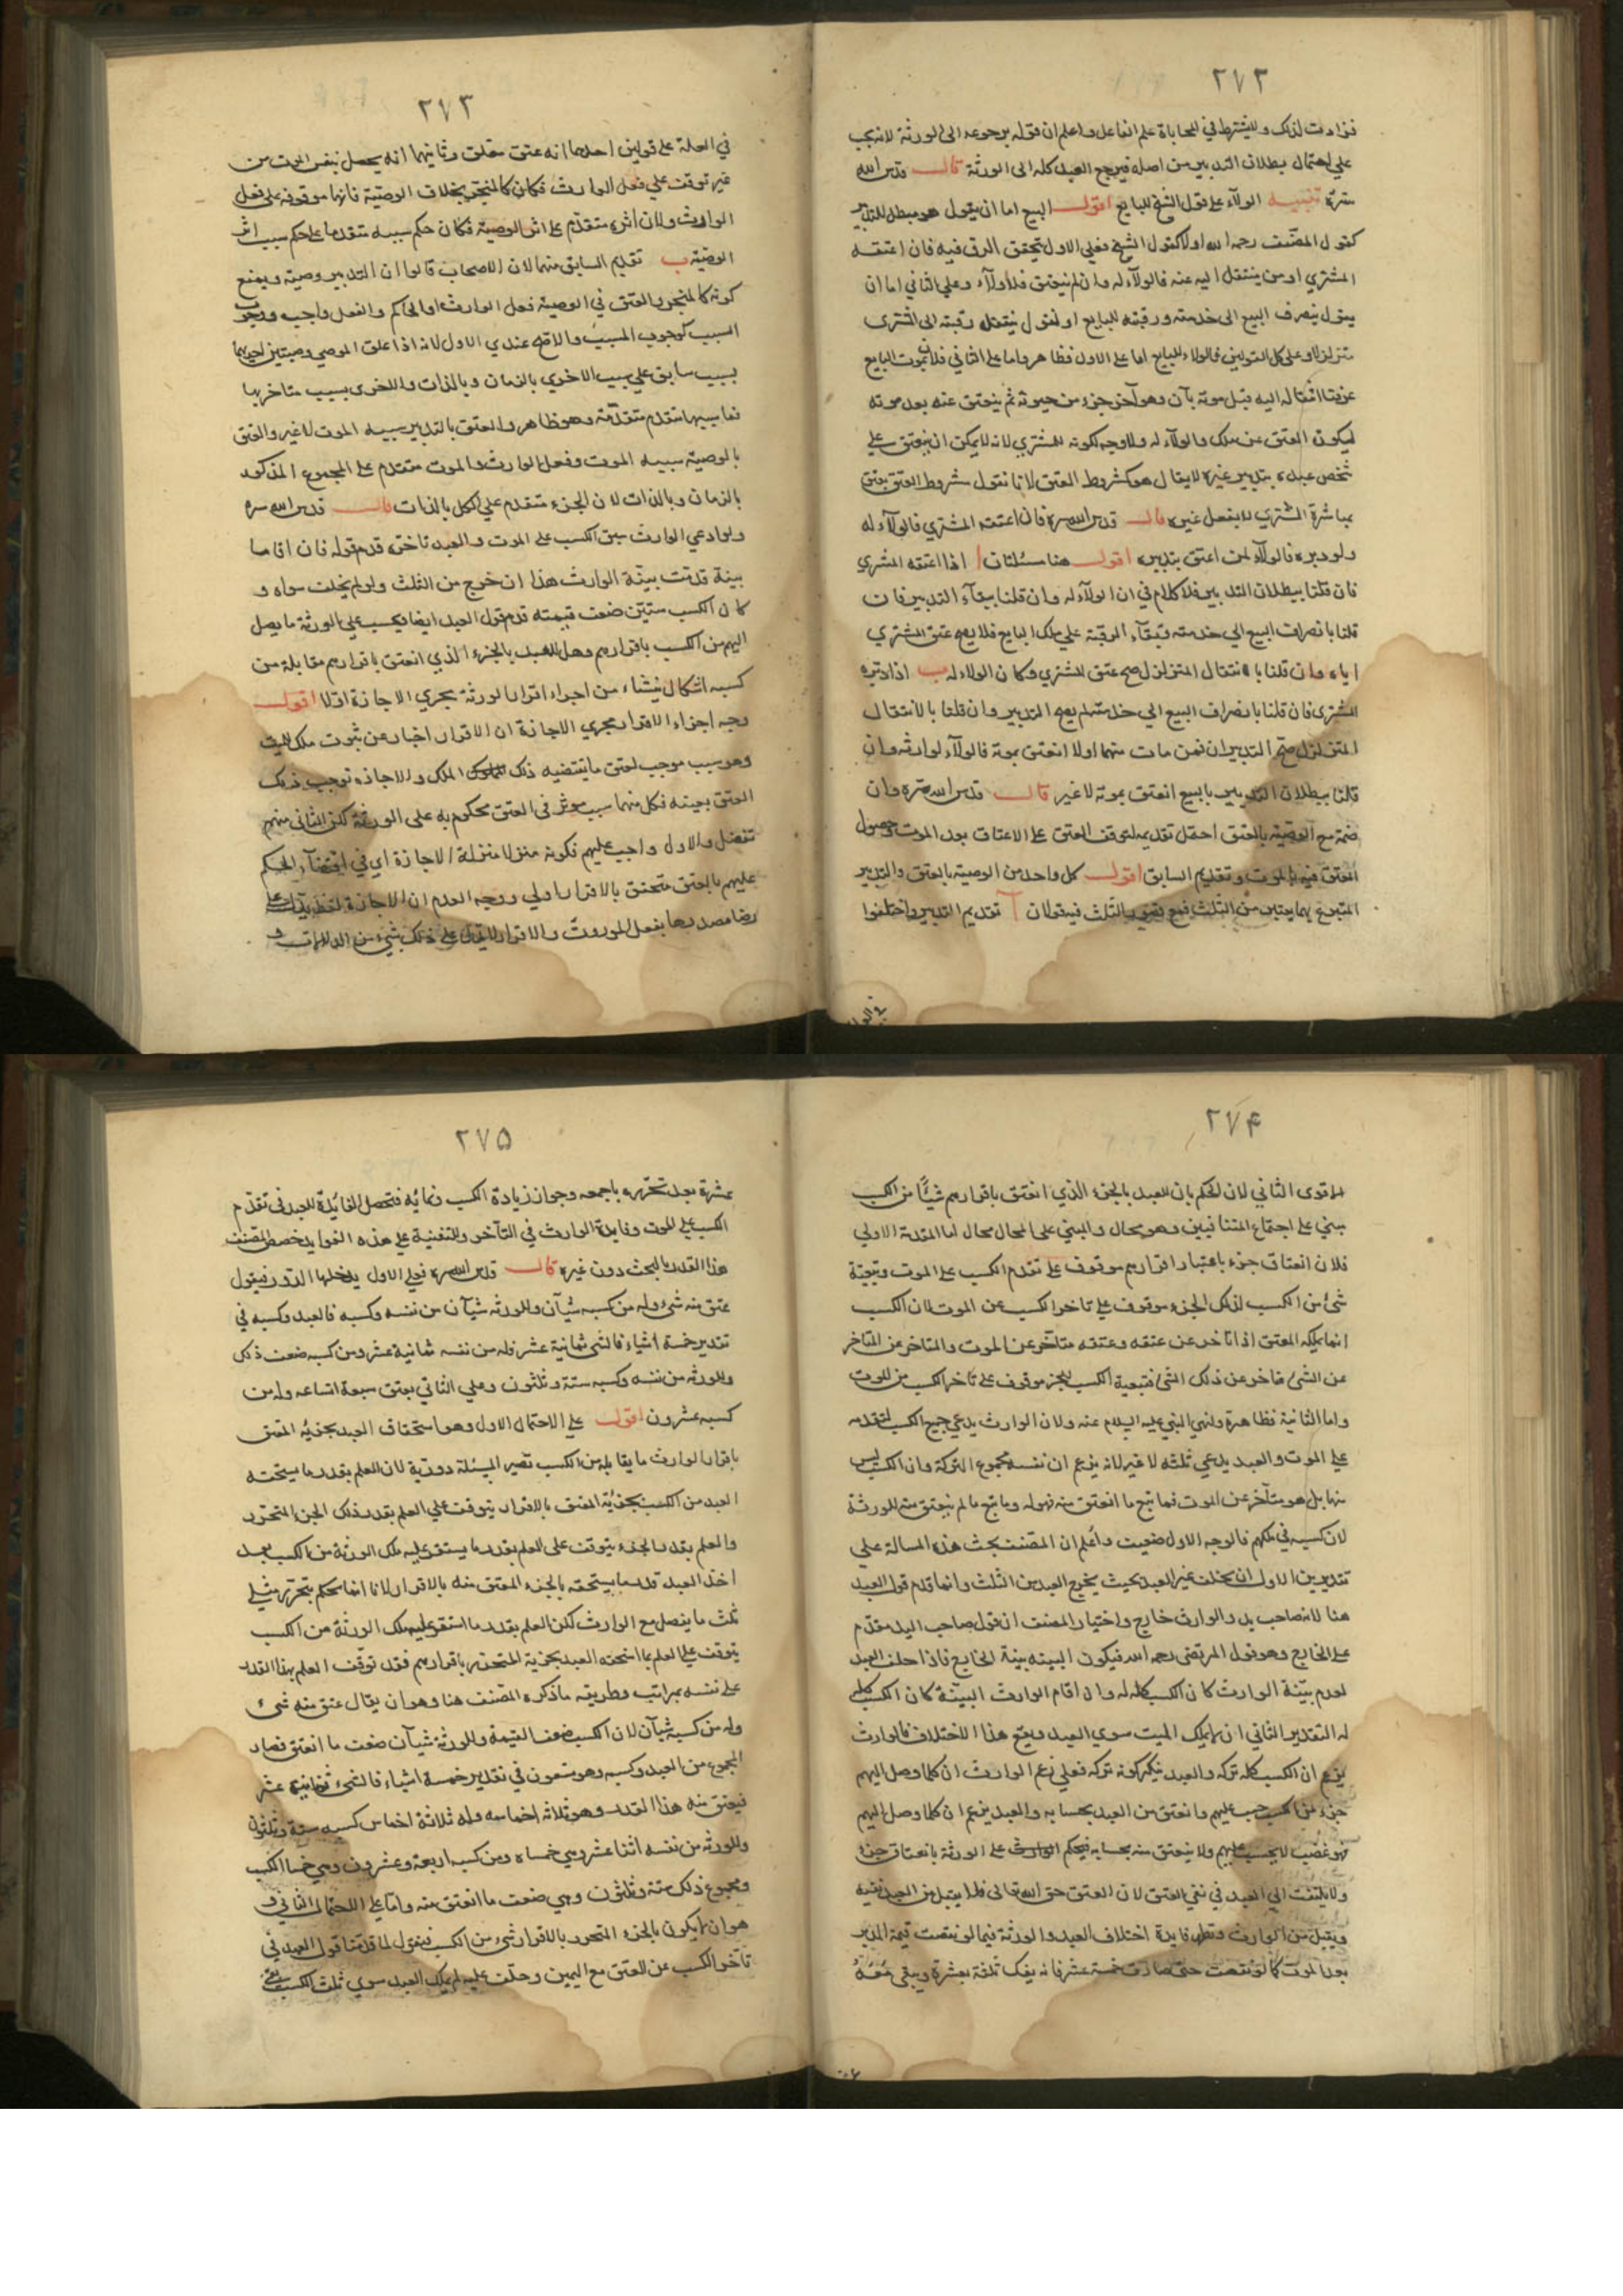 ٢٧٢
فزادت لذلك ولا يشترط في المحاباة علم الفاعل واعلم ان قوله برجوعه الى الورثة لانه يجب
على احتمال بطلان التدبير من اصله فيرجع العبد كله الى الورثة قال قدس الله
سره تنبيه الولآء على قول الشيخ للبايع اقول البيع اما ان يقول هو مبطل للتدبير
كقول المصنف رحمه الله او لا كقول الشيخ فعلى الاول يتحقق الرق فيه فان اعتقه
المشتري او من ينتقل اليه عنه فالولآء له وان لم ينعتق فلا ولآء وعلى الثاني اما ان
يقول ينصرف البيع الى خدمته ورقبته للبايع او نقول ينتقل رقبته الى المشترى
متزلزلا وعلى كل القولين فالولاء للبايع اما على الاول فظاهر واما على الثاني فلان بموت البايع
عرفنا انتقاله اليه قبل موته بآن وهو آخر جزء من حيوته ثم ينعتق عنه بعد موته
ليكون العتق عن ملك والولآء له ولا وجه لكونه للمشتري لانه لا يمكن ان ينعتق على
شخص عبده بتدبير غيره لا يقال هو كشروط العتق لانا نقول شروط العتق يعتق
بمباشرة المشتري لا بفعل غيره قال قدس الله سره فان اعتقه المشتري فالولآء له
ولو دبره فالولآء لمن اعتق بتدبيره اقول هنا مسئلتان ا اذا اعتقه المشتري
فان قلنا ببطلان التدبير فلا كلام في ان الولآء له وان قلنا ببقآء التدبير فان
قلنا بانصراف البيع الى خدمته وبقآء الرقبة على ملك البايع فلا يصح عتق المشتري
اياه وان قلنا بالانتقال المتزلزل صح عتق المشتري وكان الولاء له ب اذا دبره
المشترى فان قلنا بانصراف البيع الى خدمته لم يصح التدبير وان قلنا بالانتقال
المتزلزل صح التدبيران فمن مات منهما اولا انعتق بموته فالولآء لوارثه وان
قلنا ببطلان التدبير بالبيع انعتق بموته لا غير قال قدس الله سره وان
ضمه مع الوصية بالعتق احتمل تقديمه لتوقف العتق على الاعتاق بعد الموت وحصول
العتق فيه بالموت وتقديم السابق اقول كل واحد من الوصية بالعتق والتدبير
المتبرع بهما يعتبر من الثلث فمع قصور الثلث فيه قولان آ تقديم التدبير واختلفوا
٢٧٣
في العلة على قولين احدهما انه عتق معلق وثانيهما انه يحصل بنفس الموت من
غير توقف على فعل الوارث فكان كالمنجز بخلاف الوصية فانها موقوفة على فعل
الوارث ولان اثره متقدم على اثر الوصية فكان حكم سببه متقدما على حكم سبب اثر
الوصية ب تقديم السابق منهما لان الاصحاب قالوا ان التدبير وصية ويمنع
كونه كالمنجز والعتق في الوصية فعل الوارث او الحاكم والفعل واجب ووجوب
السبب كوجوب المسبب والاصح عندي الاول لانه اذا علق الموصي وصيتين احديهما
بسبب سابق على سبب الاخرى بالزمان وبالذات والاخرى بسبب متاخر بها
فما سببها متقدم متقدمة وهو ظاهر والعتق بالتدبير سببه الموت لا غير والعتق
بالوصية سببه الموت وفعل الوارث والموت متقدم على المجموع المذكور
بالزمان وبالذات لان الجزء متقدم على الكل بالذات قال قدس الله سره
ولو ادعى الوارث سبق الكسب على الموت والعبد تاخره قدم قوله فان اقاما
بينة قدمت بينة الوارث هذا ان خرج من الثلث ولو لم يخلف سواه و
كان الكسب ستين ضعف قيمته قدم قول العبد ايضا فيحسب على الورثة ما يصل
اليهم من الكسب باقرارهم وهل للعبد بالجزء الذي انعتق باقرارهم مقابله من
كسبه اشكال ينشاء من اجراء اقرار الورثة مجرى الاجازة او لا اقول
وجه اجراء الاقرار مجرى الاجازة ان الاقرار اخبار عن ثبوت ملك الميت
وهو سبب موجب لعتق ما يقتضيه ذلك الملك والاجازه توجب ذلك
العتق بعينه فكل منهما سبب مؤثر في العتق محكوم به على الورثة لكن الثاني منهم
تفضل والاول واجب عليهم فكونه منزلا منزلة الاجازة اي في اقتضآء الحكم
عليهم بالعتق متحقق بالاقرار اولى ووجه العدم ان الاجازة لفظ يدل على
رضا مصدرها بفعل الموروث والاقرار لا يدل على ذلك بشيء من الدلالات و
٢٧۴
الاقوى الثاني لان الحكم بان للعبد بالجزء الذي انعتق باقرارهم شيئا من الكسب
مبني على اجتماع المتنافيين وهو محال والمبني على المحال محال اما المقدمة الاولى
فلان انعتاق جزء باعتبار اقرارهم موقوف على تقدم الكسب على الموت وتبعية
شئ من الكسب لذلك الجزء موقوف على تاخر الكسب عن الموت لان الكسب
انما يملكه المعتق اذا تاخر عن عتقه وعتقه متاخر عن الموت والمتاخر عن المتاخر
عن الشئ متاخر عن ذلك الشئ فتبعية الكسب للجزء موقوف على تاخر الكسب من الموت
واما الثانية فظاهرة ولنهي النبي عليه السلام عنه ولان الوارث يدعي جميع الكسب لتقدمه
على الموت والعبد يدعي ثلثه لا غير لانه يزعم ان نفسه مجموع التركة وان الكسب ليس
منها بل هو متآخر عن الموت فما تبع ما انعتق منه فهو له وما تبع ما لم ينعتق منه للورثة
لان كسبه في ملكهم فالوجه الاول ضعيف واعلم ان المصنف بحث هذه المسالة على
تقديرين الاول ان يخلف غير العبد بحيث يخرج العبد من الثلث وانما قدم قول العبد
هنا لانه صاحب يد والوارث خارج واختيار المصنف ان قول صاحب اليد مقدم
على الخارج وهو قول المرتضى رحمه الله فيكون البينة بينة الخارج فاذا حلف العبد
لعدم بينة الوارث كان الكسب كله له وان اقام الوارث البينة كان الكسب كله
له التقدير الثاني ان لا يملك الميت سوى العبد ويقع هذا الاختلاف فالوارث
يزعم ان الكسب كله تركه والعبد ينكر كونه تركه فعلى زعم الوارث ان كلما وصل اليهم
جزء من الكسب حسب عليهم وانعتق من العبد بحسابه والعبد يزعم ان كلما وصل اليهم
فهو غصب لا يحسب عليهم ولا ينعتق منه بحسابه فيحكم على الورثة بانعتاق جزء
ولا يلتفت الى العبد في نفي العتق لان العتق حق الله تعالى فلا يقبل من العبد نفيه
ويقبل من الوارث وتظهر فايدة اختلاف العبد والورثة فيما لو نقصت قيمة المدبر
بعد الموت كما لو نقصت حتى صارت خمسة عشر فانه يفك ثلثه بعشرة ويبقى معه
٢٧۵
عشرة بعد تحريره باجمعه وجواز زيادة الكسب ونمائه فتحصل الفايدة للعبد في تقدم
الكسب على الموت وفايدة الوارث في التآخر وللتنبيه على هذه الفوايد خصص المصنف
هذا القدر بالبحث دون غيره قال قدس الله سره فعلى الاول يدخلها الدور فيقول
عتق منه شئ وله من كسبه شيآن وللورثه شيآن من نفسه وكسبه فالعبد وكسبه في
تقدير خمسة اشياء فالشئ ثمانية عشر فله من نفسه ثمانية عشر ومن كسبه ضعف ذلك
وللورثه من نفسه وكسبه ستة وثلثون وعلى الثاني يعتق سبعة اتساعه وله من
كسبه عشرون اقول على الاحتمال الاول وهو استحقاق العبد بجزئه المعتق
باقرار الوارث ما يقابله من الكسب تصير المسئلة دورية لان العلم بقدر ما يستحقه
العبد من الكسب بجزئه المعتق بالاقرار يتوقف على العلم بقدر ذلك الجزء المتحرر
والعلم بقدر الجزء يتوقف على العلم بقدر ما يستقر عليه ملك الورثة من الكسب بعد
اخذ العبد قدر ما يستحقه بالجزء المعتق منه بالاقرار لانا انما نحكم بتحرر مثلي
ثلث ما يفصل مع الوارث لكن العلم بقدر ما استقر عليه ملك الورثة من الكسب
يتوقف على العلم بما استحقه العبد بجزئه المتحرر باقرارهم فقد توقف العلم بهذا القدر
على نفسه بمراتب وطريقه ما ذكره المصنف هنا وهو ان يقال عتق منه شئ
وله من كسبه شيآن لان الكسب ضعف القيمة وللورثة شيآن ضعف ما انعتق فصار
المجموع من العبد وكسبه وهو تسعون في تقدير خمسة اشياء فالشئ ثمانية عشر
فيعتق منه هذا القدر وهو ثلاثه اخماسه وله ثلاثة اخماس كسبه ستة وثلثون
وللورثه من نفسه اثنا عشر وهي خمساه ومن كسبه اربعة وعشرون وهي خمسا الكسب
ومجموع ذلك ستة وثلثون وهي ضعف ما انعتق منه واما على الاحتمال الثاني و
هو ان لا يكون بالجزء المتحرر بالاقرار شئ من الكسب فيقول لما قدمنا قول العبد في
تآخر الكسب عن العتق مع اليمين وحلف عليه لم يملك العبد سوى ثلث الكسب